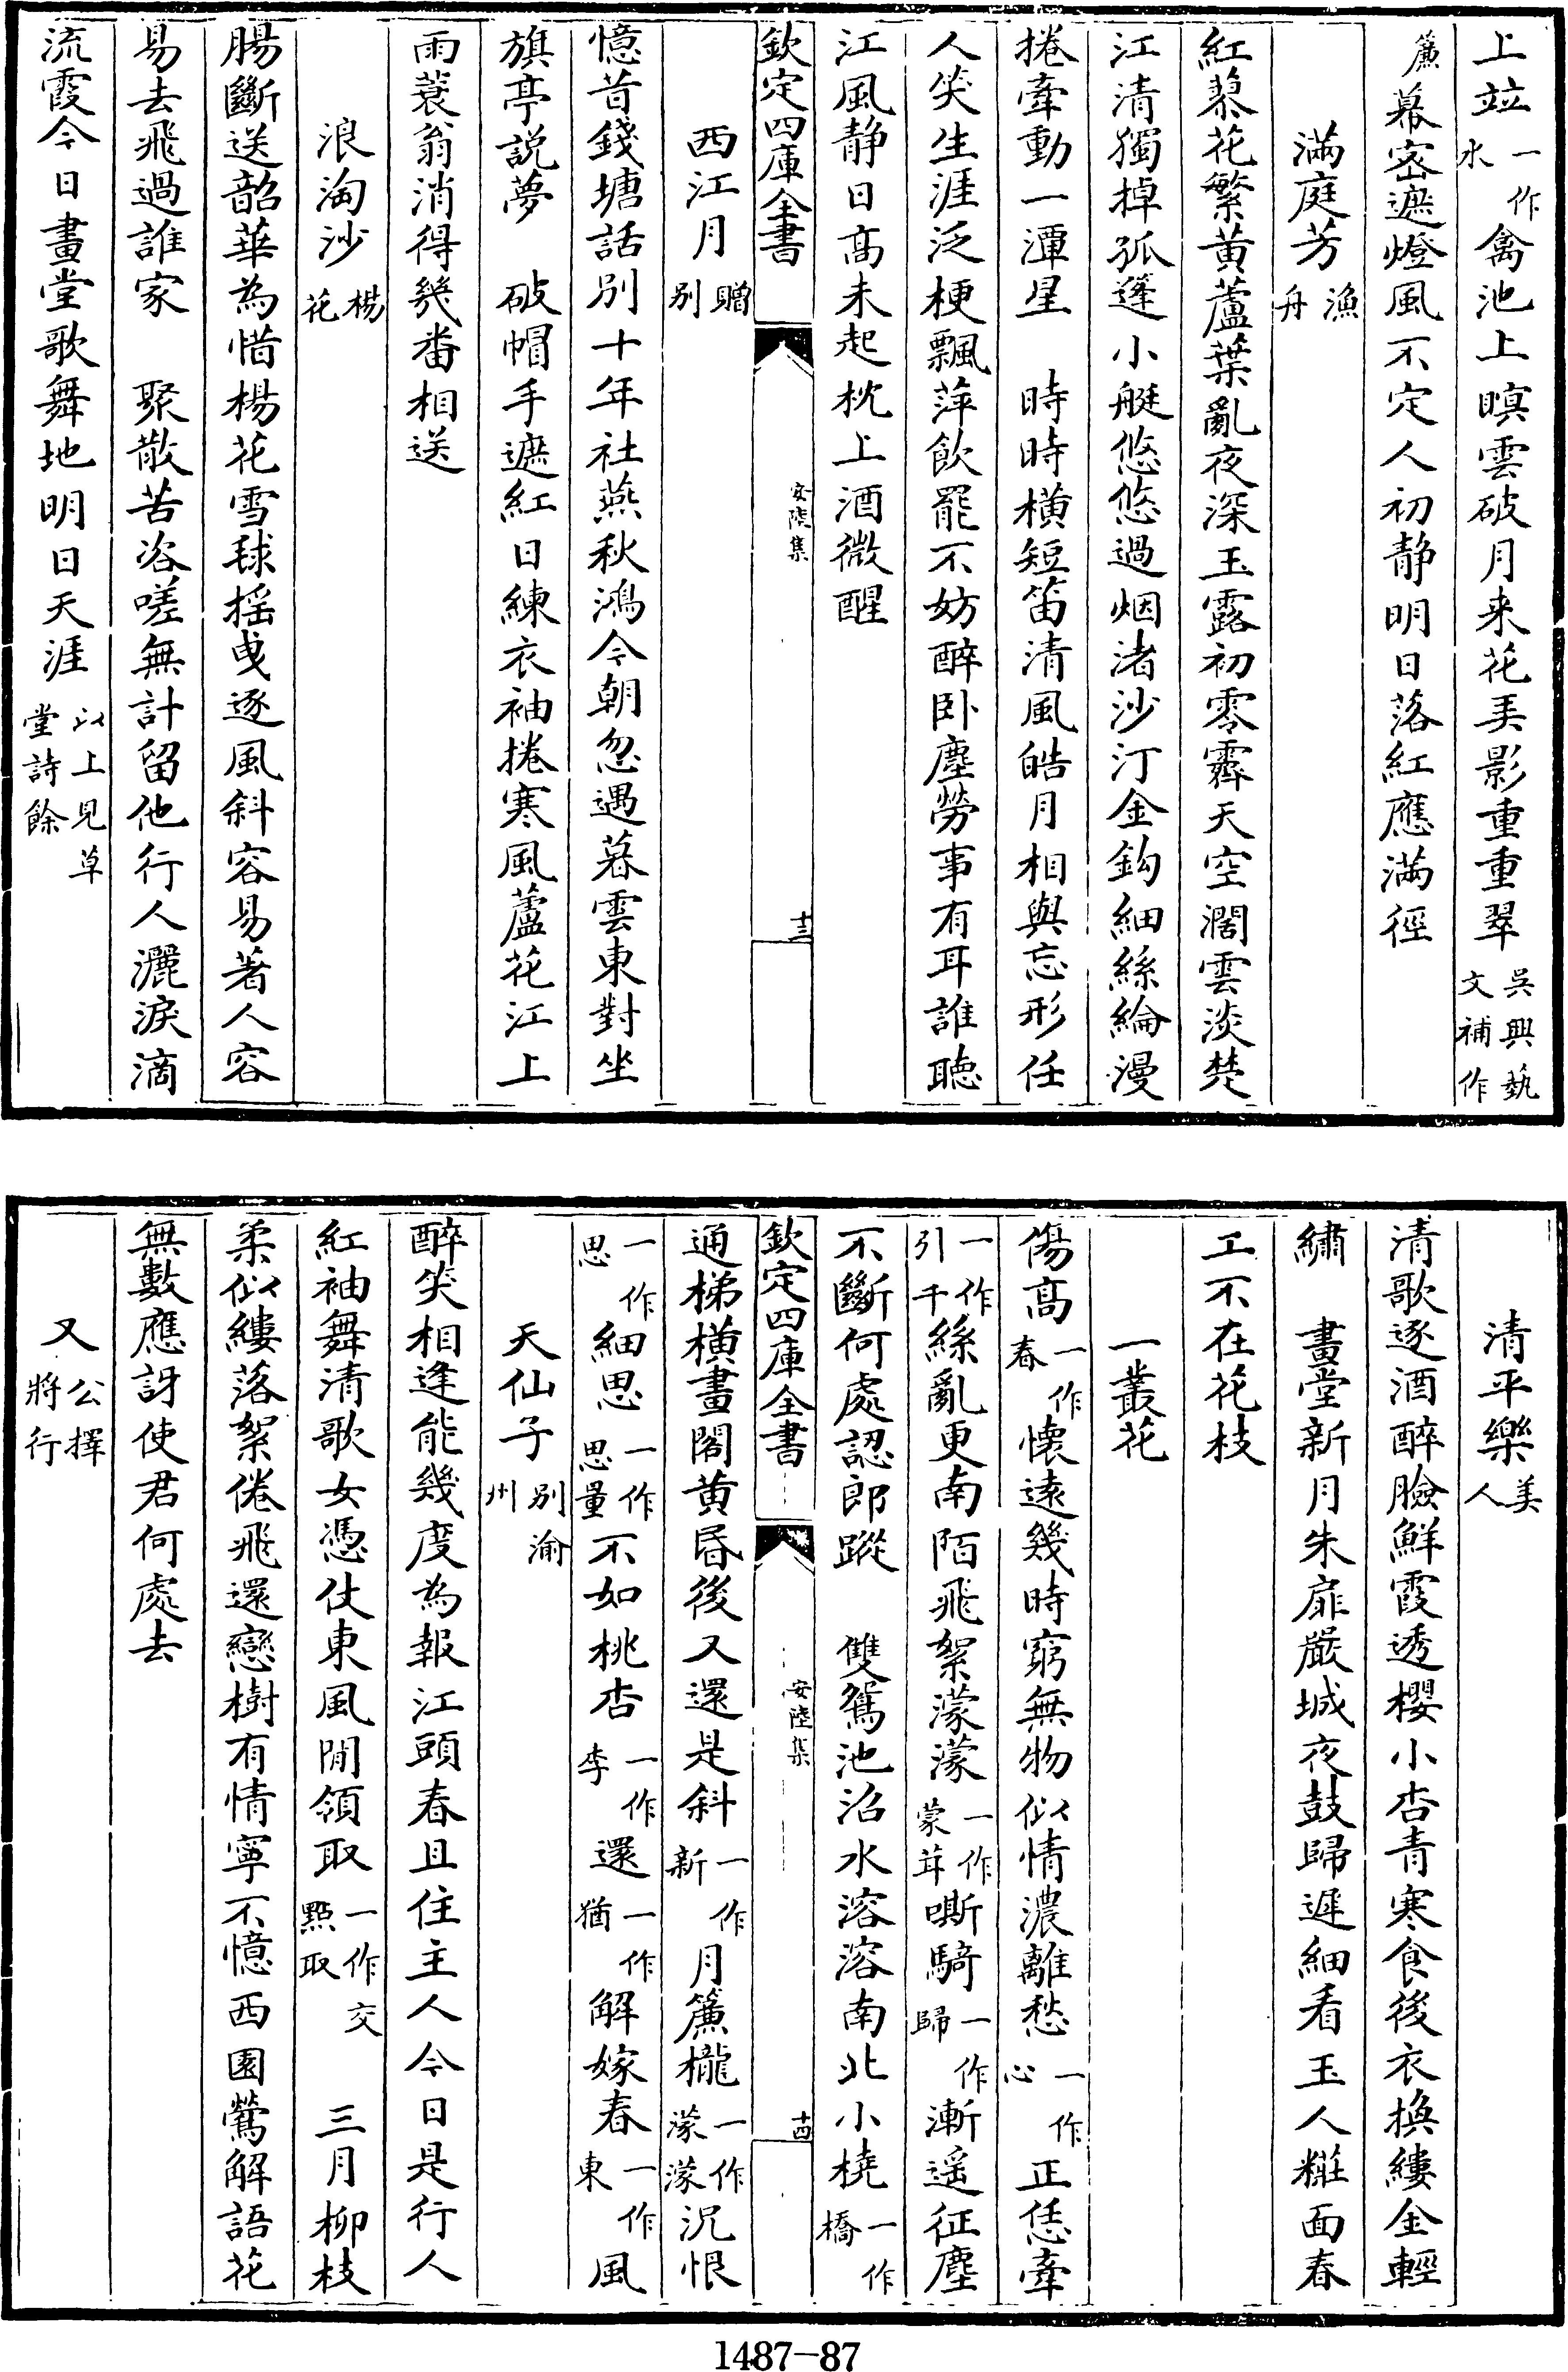 上竝一作水禽池上暝雲破月来花美影重重翠吳興藝文補作
簾幕密遮燈風不定人初静明日落紅應滿徑
滿庭芳漁舟
紅蓼花繁黄蘆葉亂夜深玉露初零霽天空濶雲淡楚
江清獨棹孤蓬小艇悠悠過烟渚沙汀金鈎細絲綸漫
捲牽動一潭星　時時橫短笛清風皓月相與忘形任
人笑生涯泛梗飄萍飲罷不妨醉卧塵勞事有耳誰聴
江風静日高未起枕上酒微醒
欽定四庫全書　安陸集　十三
西江月贈别
憶昔錢塘話别十年社燕秋鴻今朝忽遇暮雲東對坐
旗亭説夢　破帽手遮紅日練衣袖捲寒風蘆花江上
雨蓑翁消得幾番相送
浪淘沙楊花
腸斷送韶華為惜楊花雪毬揺曵逐風斜容易著人容
易去飛過誰家　聚散苦咨嗟無計留他行人灑淚滴
流霞今日畫堂歌舞地明日天涯以上見草堂詩餘
清平樂美人
清歌逐酒醉臉鮮霞透櫻小杏青寒食後衣换縷金輕
繡　畫堂新月朱扉嚴城夜鼓歸遲細看玉人粧面春
工不在花枝
一叢花
傷高一作春懐遠幾時窮無物似情濃離愁一作心正恁牽
引一作千絲亂更南陌飛絮濛濛一作蒙茸嘶騎一作歸漸遥征塵
不斷何處認郎蹤　雙鴛池沼水溶溶南北小橈一作橋
欽定四庫全書　安陸集　十四
通梯橫畫閣黄昏後又還是斜一作新月簾櫳一作濛濛沉恨
一作思細思一作思量不如桃杏一作李還一作猶解嫁春一作東風
天仙子别渝州
醉笑相逢能幾度為報江頭春且住主人今日是行人
紅袖舞清歌女憑仗東風閒領取一作交點取　三月柳枝
柔似縷落絮倦飛還戀樹有情寧不憶西園鶯解語花
無數應訝使君何處去
又公擇將行
1487-87